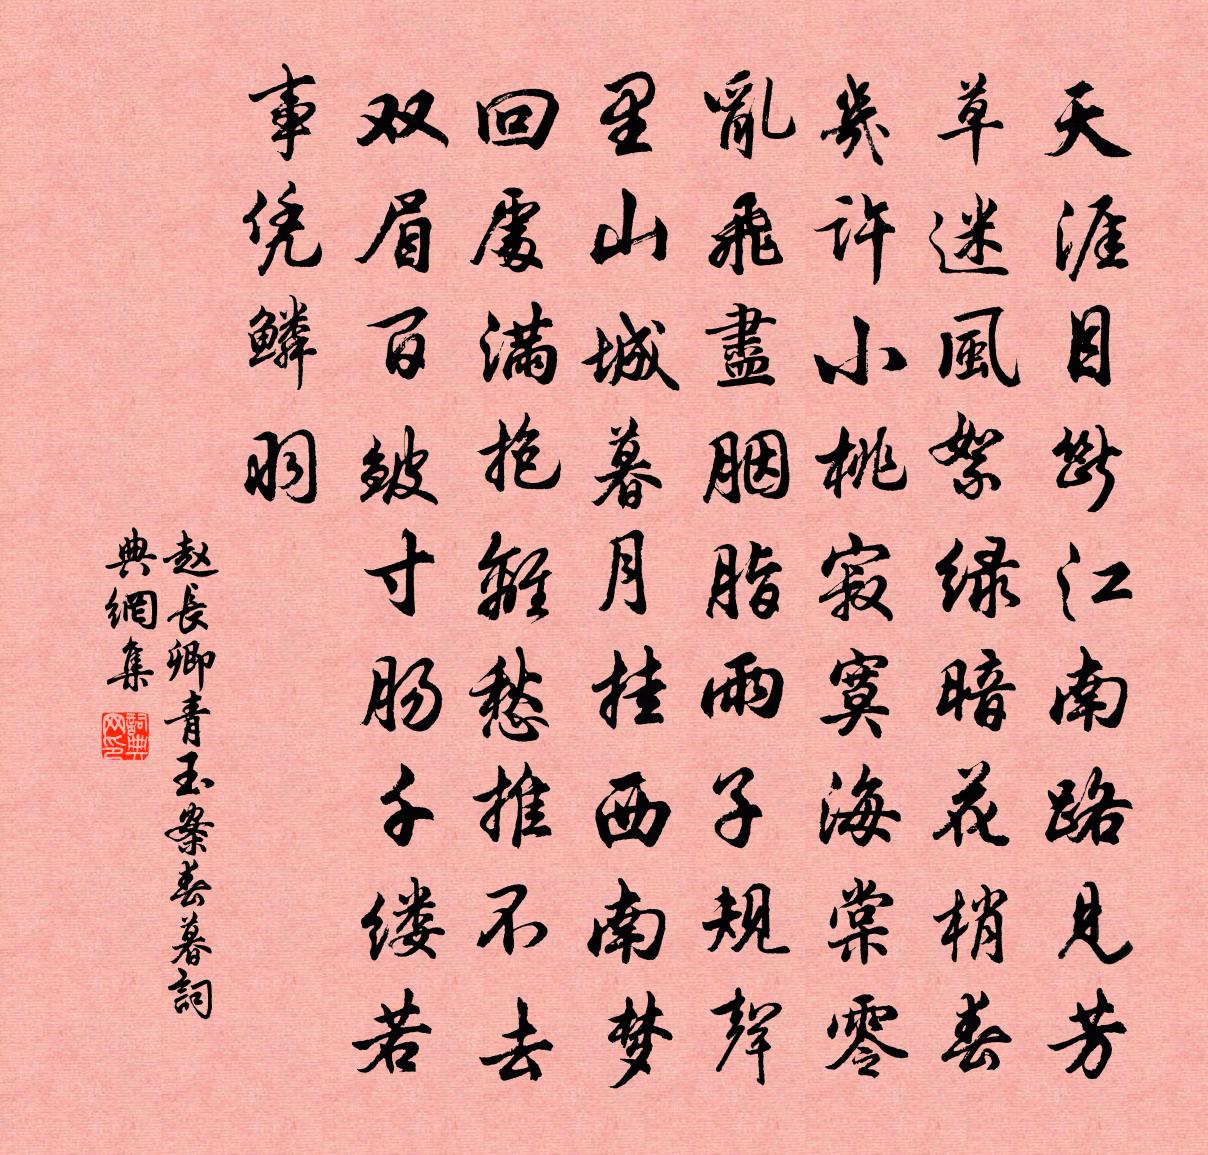 天涯目斷江南路見芳
草迷風絮绿暗花梢春
幾許小桃寂寞海棠零
亂飛盡胭脂雨子規聲
里山城暮月挂西南梦
回處滿抱離愁推不去
双眉百皺寸肠千缕若
事凭鱗羽
赵長卿青玉案春暮詞
典網集
詞典
网印